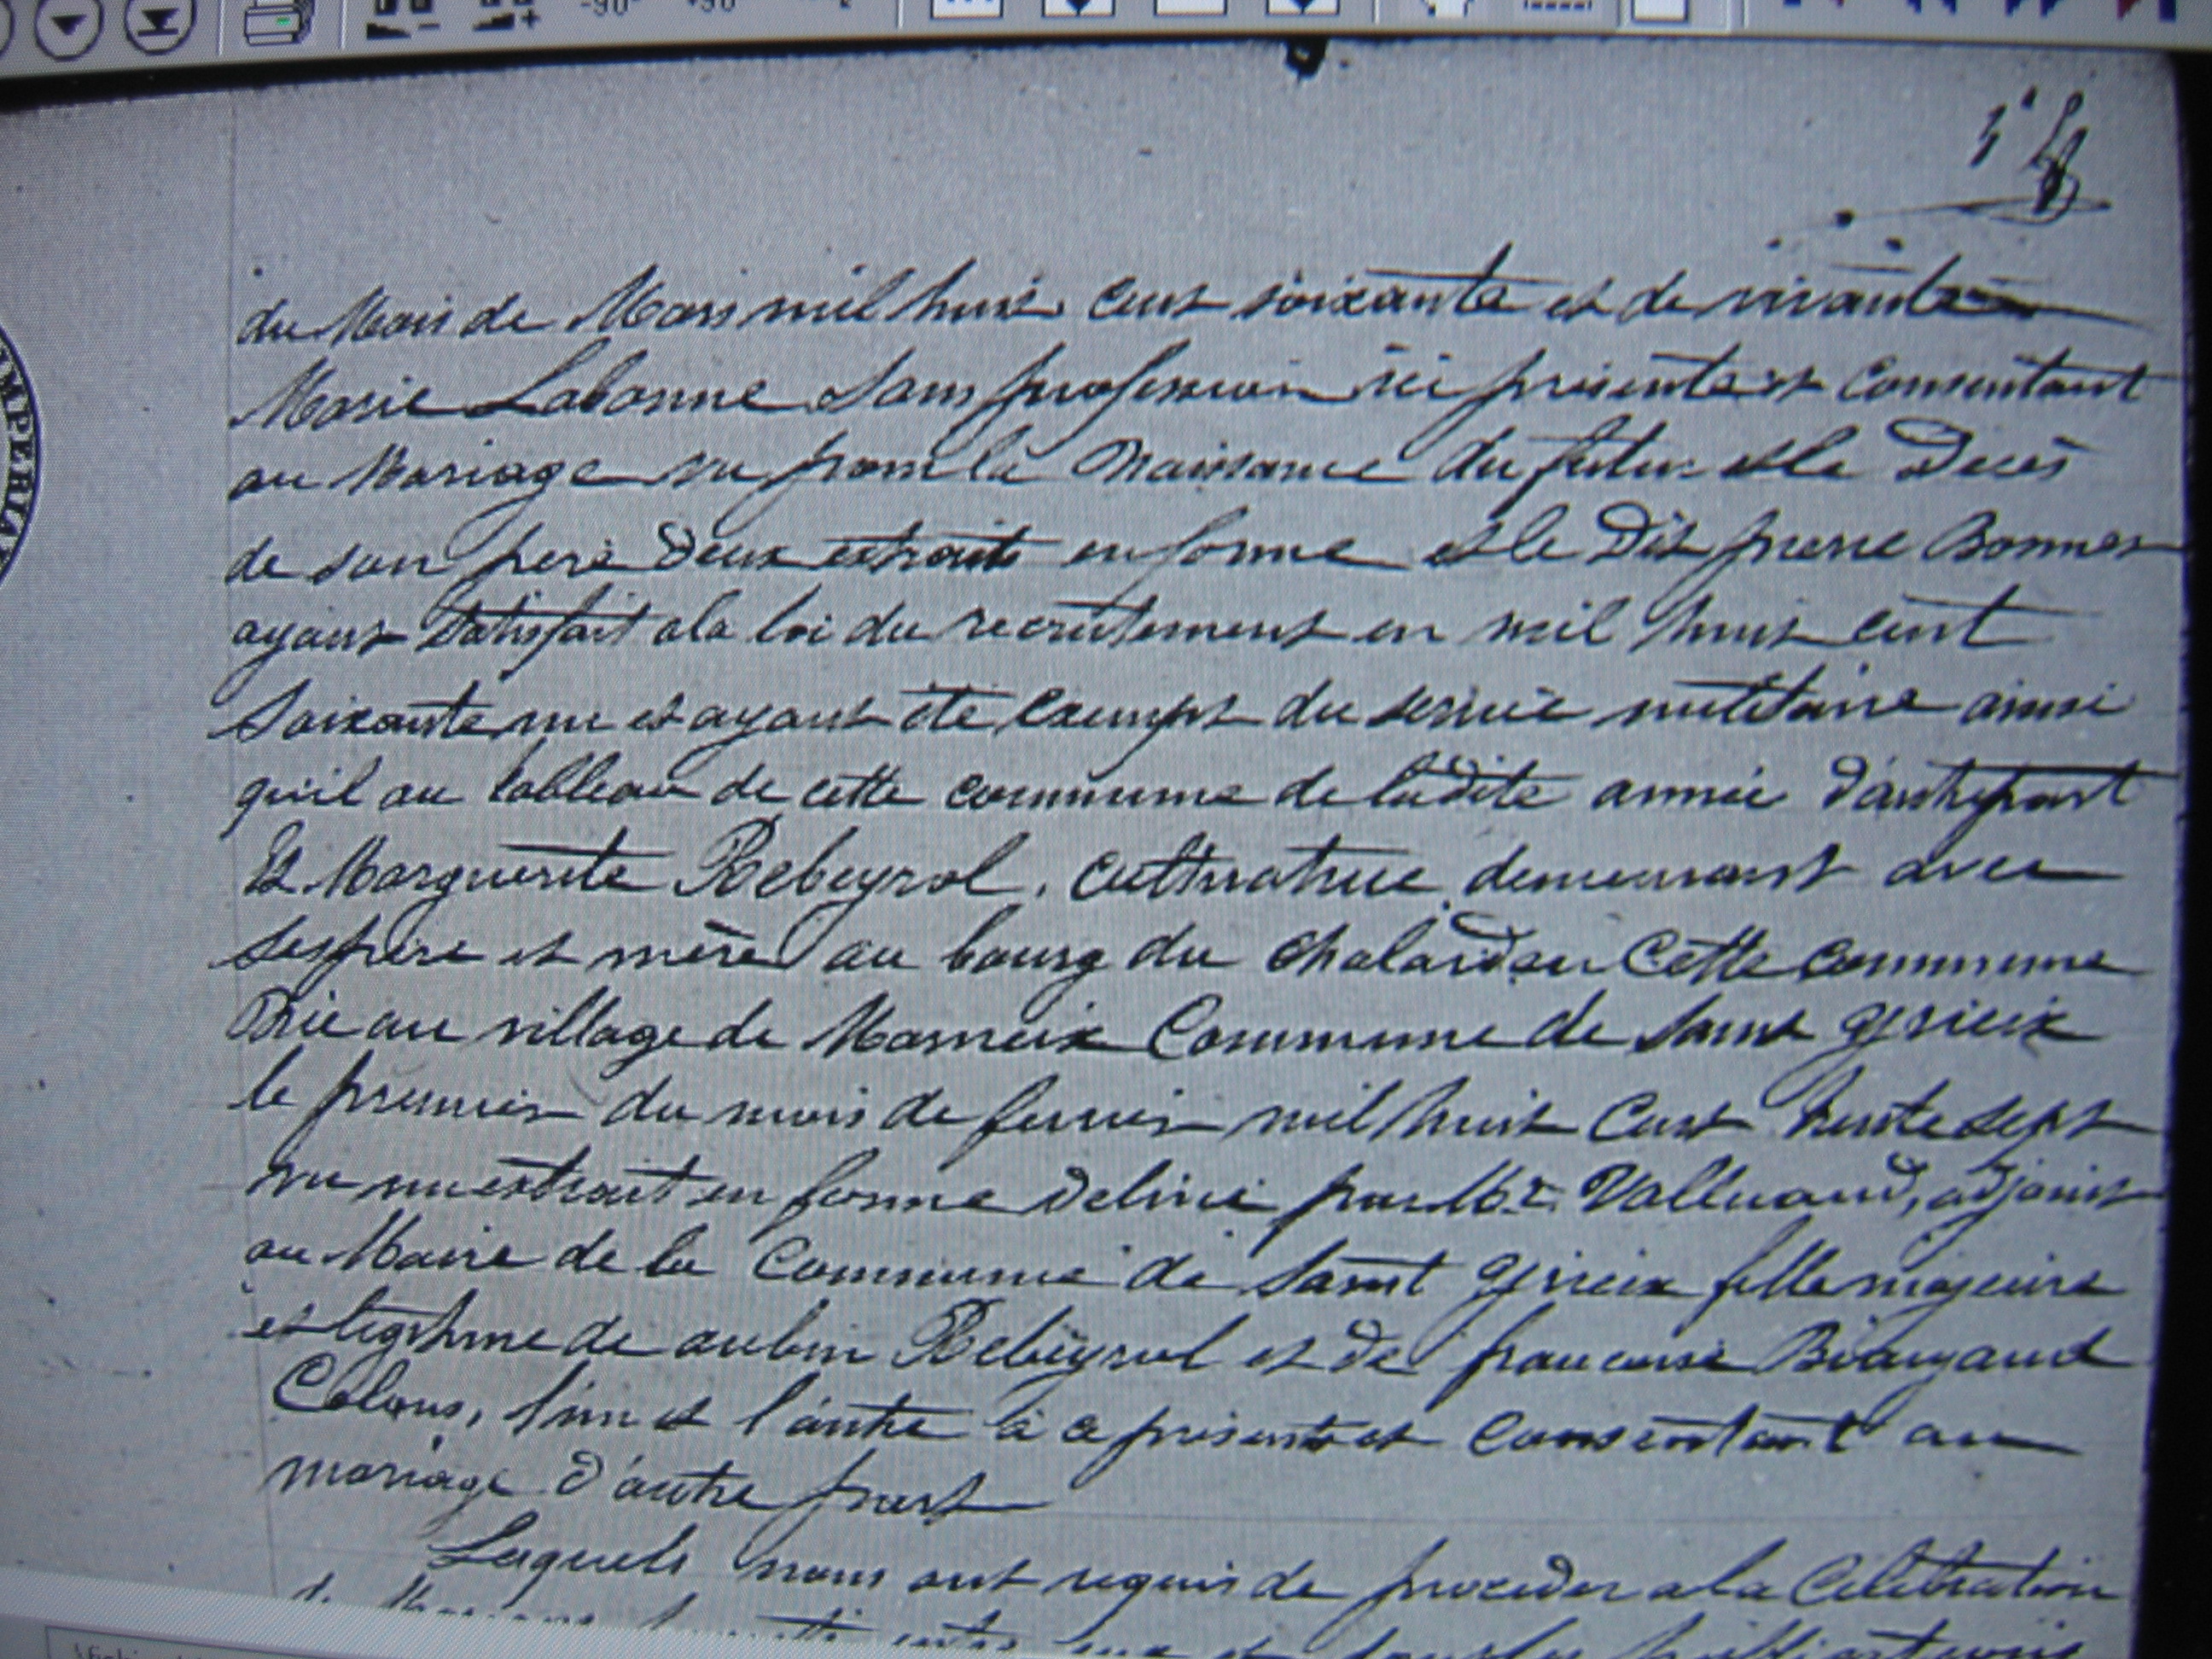 -90° +90°
14
MPERIA
du Mois de Mars mil huit cent soixante et de vivante
Marie Labonne Sans profession ici presente et consentant
au Mariage vu pour la Naissance du futur et le Decès
de son pere deux extraits en forme et le Dit pierre Bonnet
ayant Satisfait a la loi du recrutement en mil huit cent
Soixante un et ayant été exempt du service militaire ainsi
qu'il au tableau de cette commune de ladite année d'autre part
Et Marguerite Rebeyrol, cultivatrice demeurant avec
ses père et mère au bourg du Chalard en Cette commune
Née au village de Marneix Commune de Saint Yrieix
le premier du mois de fevrier mil huit Cent trente sept
vu un extrait en forme delivré par Mr. Valluaud, adjoint
au Maire de la Commune de Saint Yrieix fille majeure
et legitime de aubin Rebeyrol et de francoise Biaujaud
Colons, l'un et l'autre à ce present et consentant au
mariage d'autre part
Lesquels nous ont requis de proceder a la Célébration
de Mariage entre eux et publications